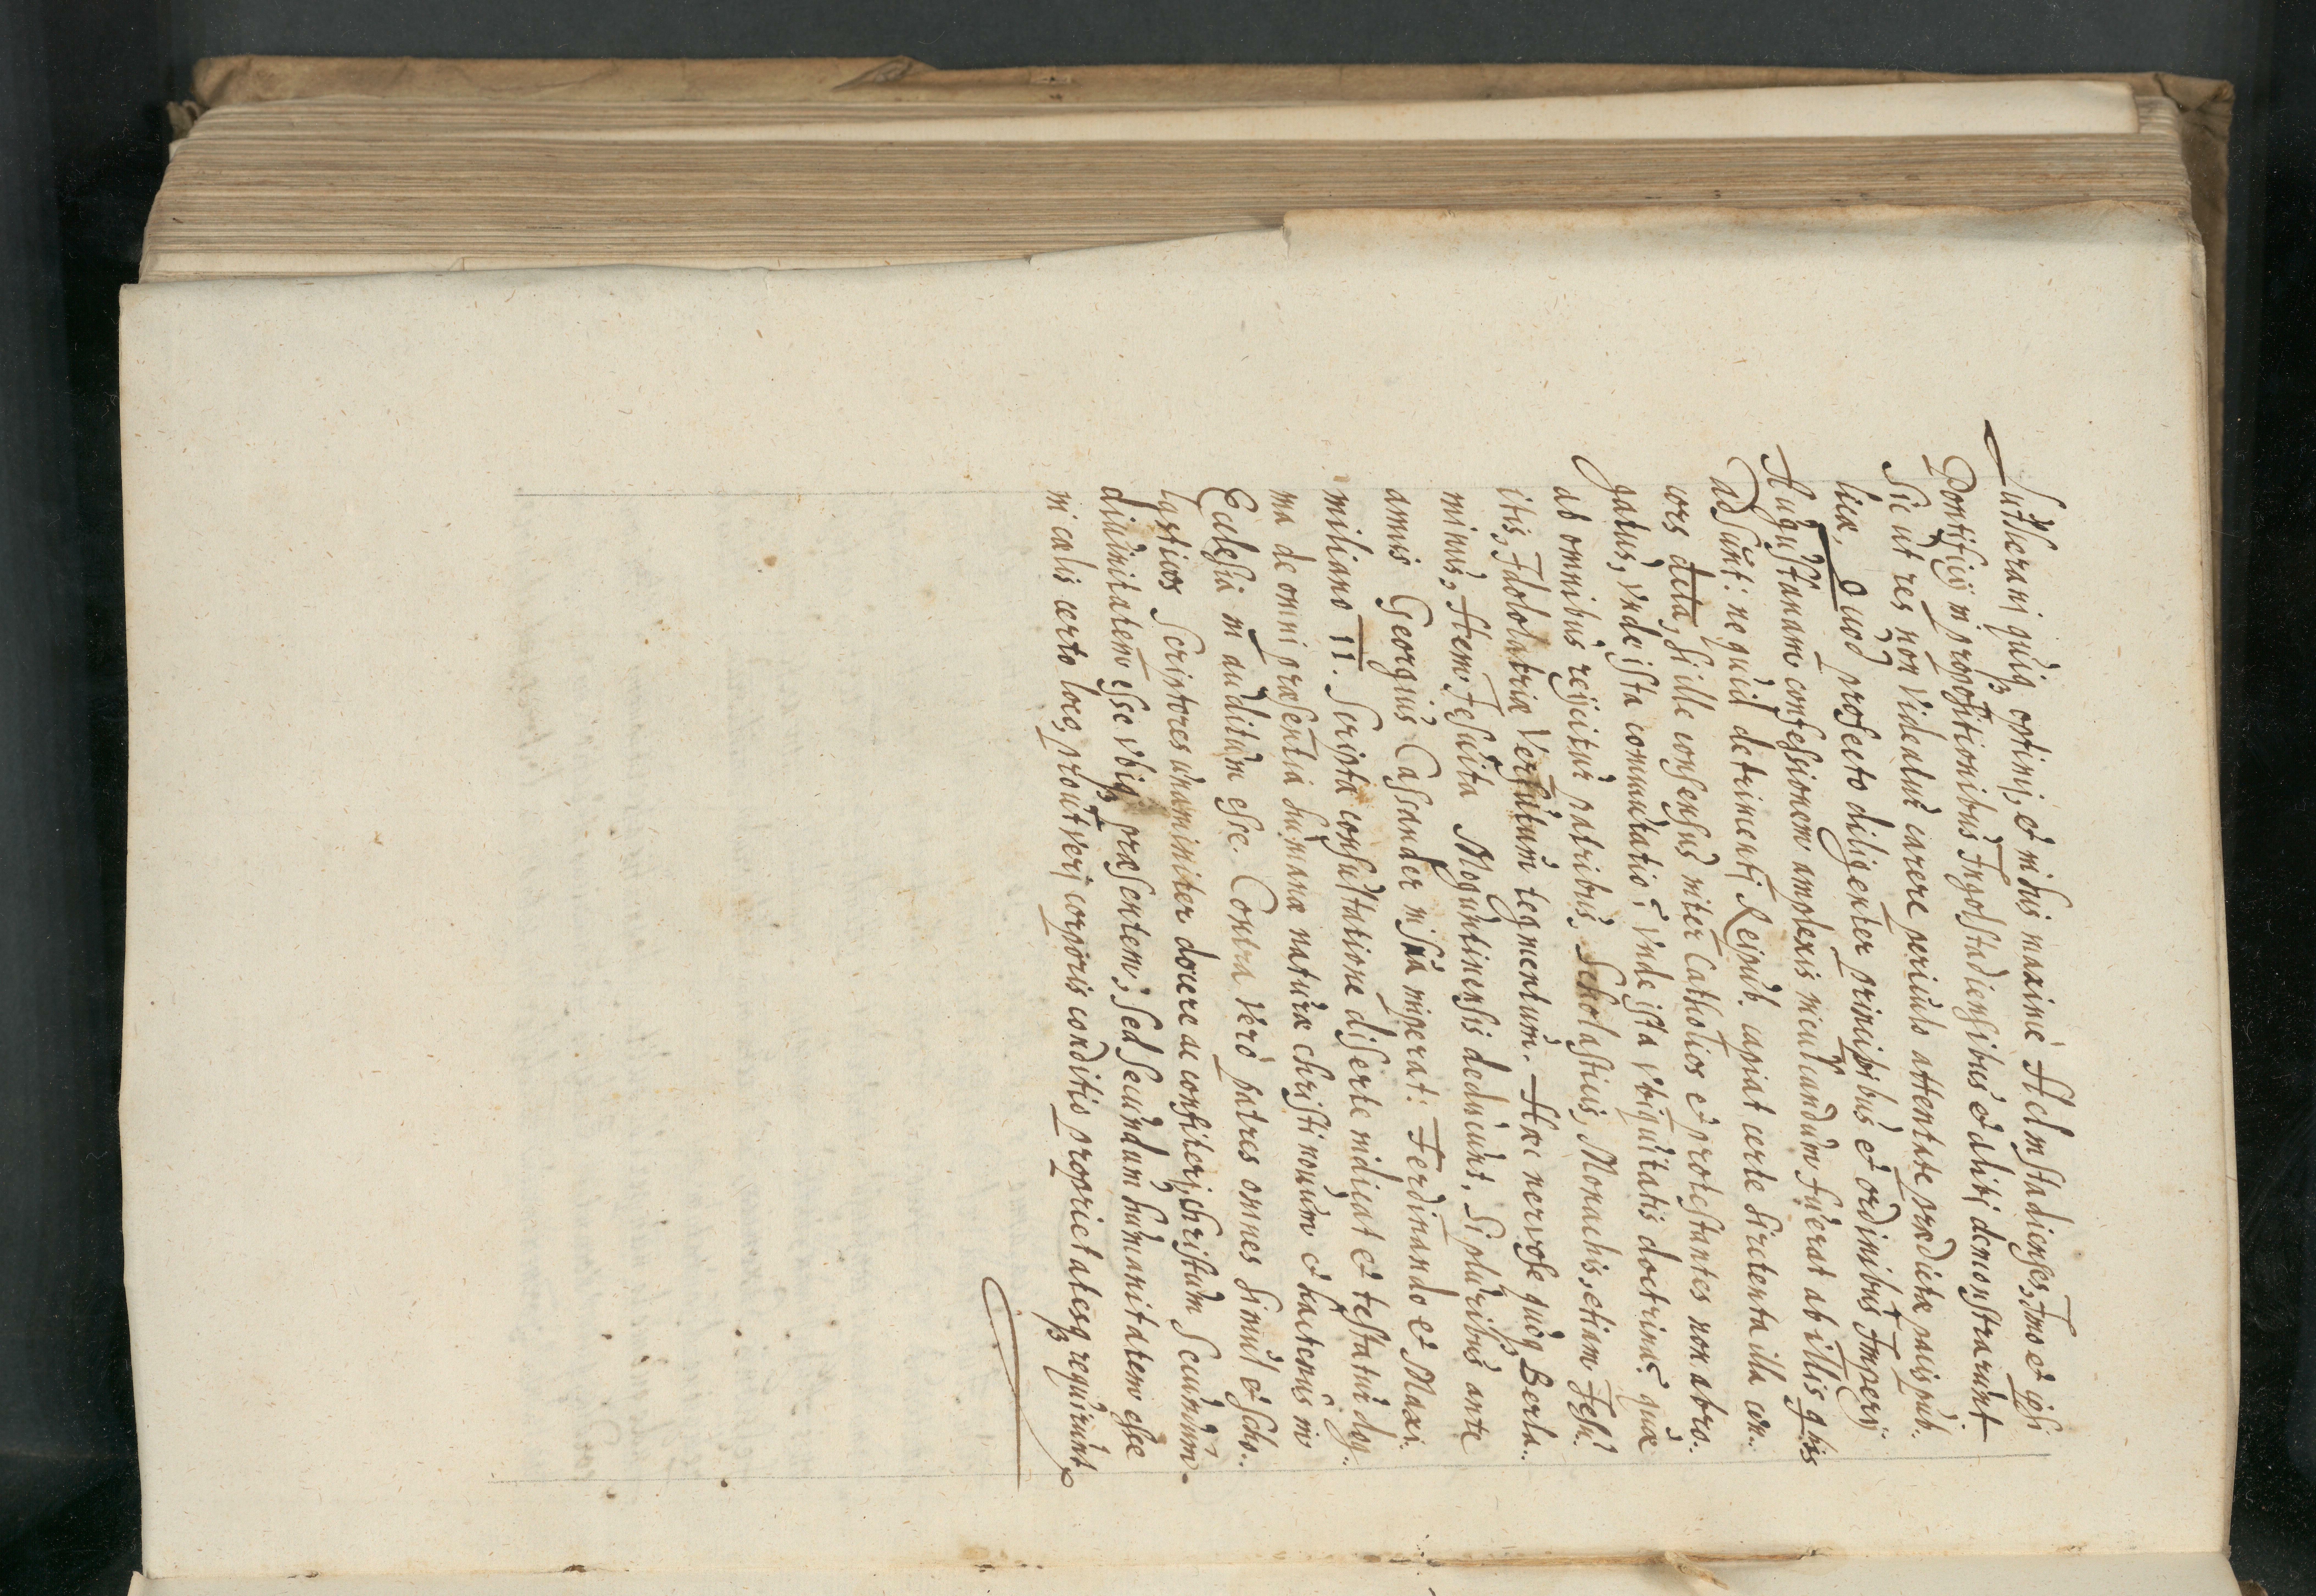 Lutherani quiq₃ optimj, & in his maximè Helmstadienses, Imo & ipsi
Pontificij in propositionibus Ingolstadiensibus & alibj demonstrarunt
Sicut res non videatur carere periculo attentatæ prædictæ pacis pub:
licæ, Quod profecto diligenter principibus & ordinibus Imperij
Augustanam confessionem amplexis inculcandum fuerat ab illis qbis
adsunt: ne quid detrimentj Reipub: capiat certe si retenta illa con:
cors dicta, si ille consensus inter Catholicos & protestantes non abro:
gatus, vnde ista comutatio? vnde ista vbiquitatis doctrina? quæ
ab omnibus reijcitur patribus, Scholasticis, Monachis, etiam Iesu:
itis, Idololatriæ versutum tegmentum. Hæc nervose quoq₃ Berla:
minus, Item Iesuita Moguntinensis deducunt. Si pluribus ante
annis Georgius Cassander in sua imperat: Ferdinando et Maxi:
miliano II. Scripta consultatione diserte indicat & testatur dog:
ma de omni præsentia humanæ naturæ christi nouum & hactenus in
Ecclesia in auditum esse. Contra verò patres omnes simul & scho:
lasticos Scriptores vnaminiter docere ac confiterj, christum Secundum
diuinitatem esse vbiq₃ præsentem, sed secundum humanitatem esse
in cælis certo loco, prout verj corporis conditio proprietatesq₃ requirunt.